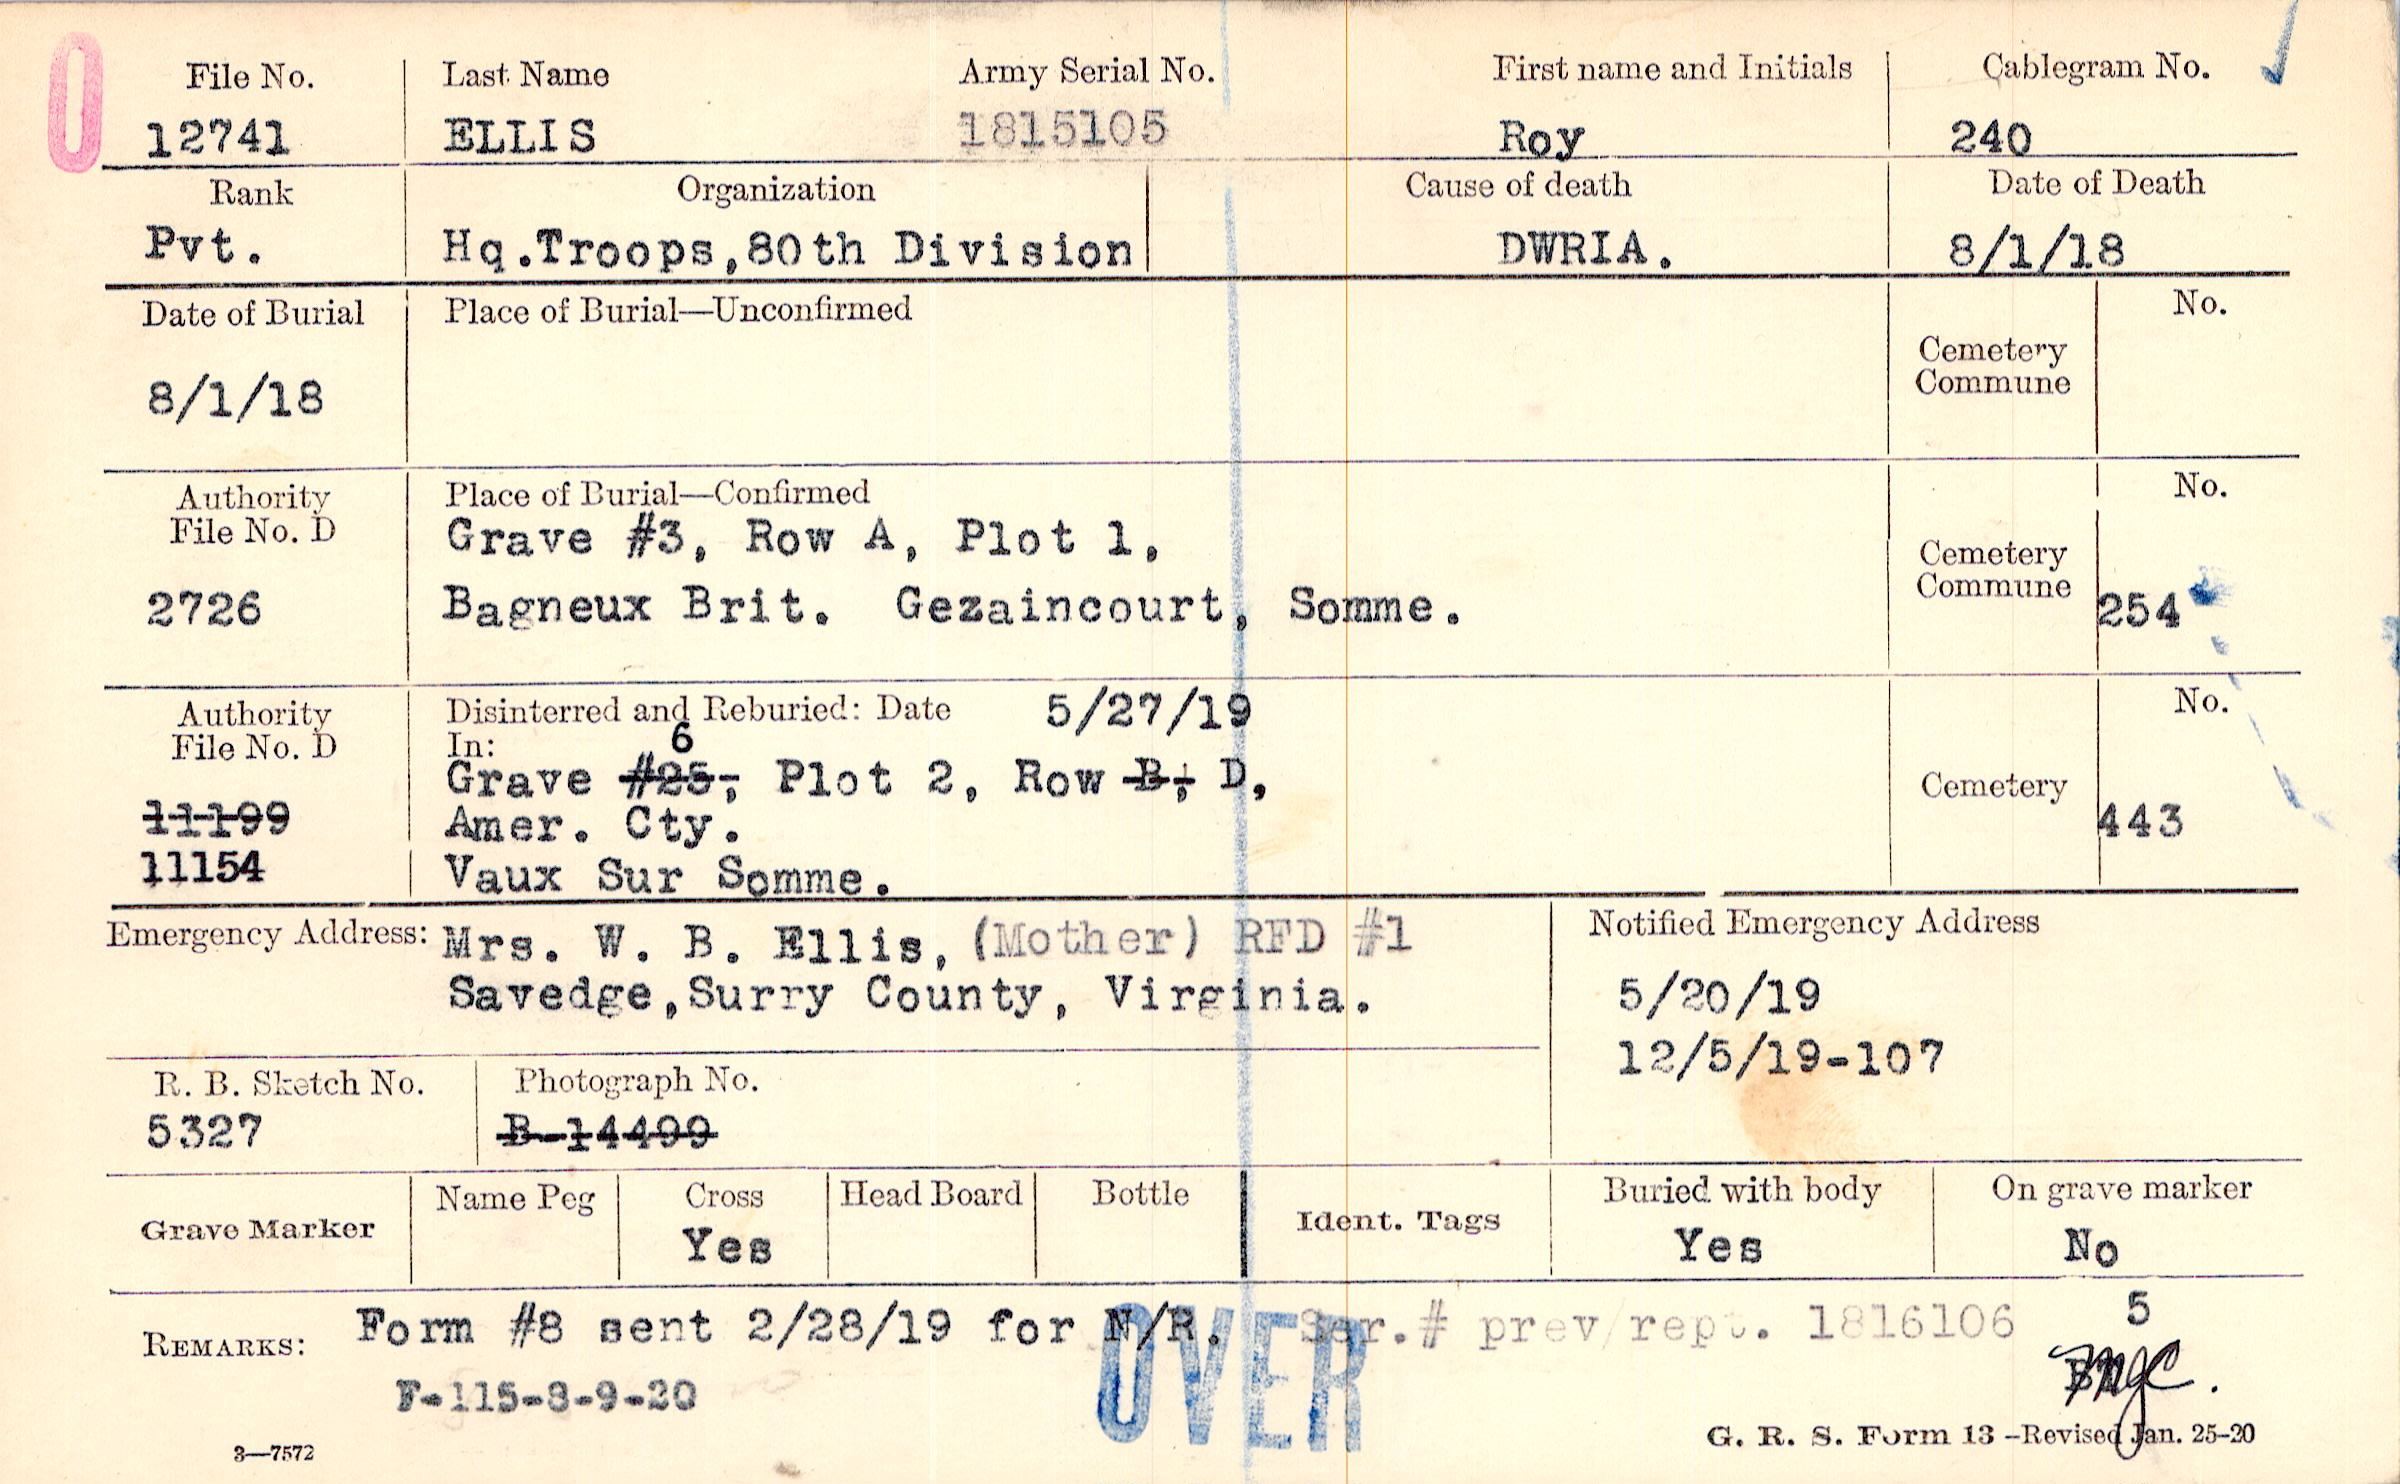 0
File No. Last Name Army Serial No. First name and Initials Cablegram No.
12741 ELLIS 1815105 Roy 240
Rank Organization Cause of death Date of Death
Pvt. Hq.Troops,80th Division DWRIA. 8/1/18
Date of Burial Place of Burial—Unconfirmed No.
Cemetery
Commune
8/1/18
Authority Place of Burial—Confirmed No.
File No. D Grave #3, Row A, Plot 1,
Cemetery
Commune
2726 Bagneux Brit. Gezaincourt, Somme. 254
Authority Disinterred and Reburied: Date 5/27/19 No.
File No. D In: 6
Grave #25, Plot 2, Row B, D,
Cemetery
11199 Amer. Cty. 443
11154 Vaux Sur Somme.
Emergency Address: Mrs. W. B. Ellis, (Mother) RFD #1 Notified Emergency Address
Savedge,Surry County, Virginia. 5/20/19
12/5/19-107
R. B. Sketch No. Photograph No.
5327 B-14499
Grave Marker Name Peg Cross Head Board Bottle Ident. Tags Buried with body On grave marker
Yes Yes No
REMARKS: Form #8 sent 2/28/19 for N/R. Ser.# prev/rept. 1816106 5
OVER
F-115-8-9-20
3—7572 G. R. S. Form 13 –Revised Jan. 25–20